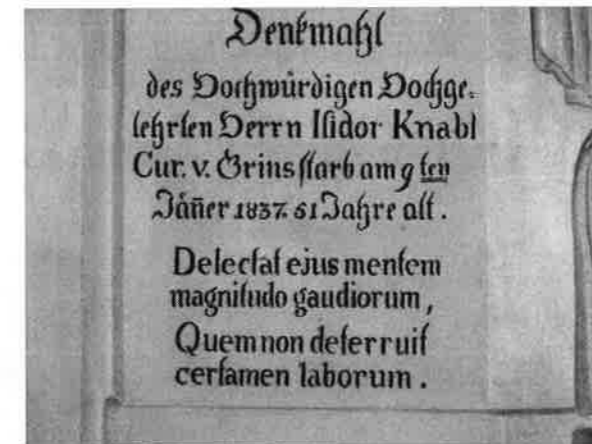 Denkmahl
des Hochwürdigen Hochge-
lehrten Herrn Isidor Knabl
Cur. v. Grins starb am 9ten
Jäñer 1837. 61 Jahre alt.
Delectat ejus mentem
magnitudo gaudiorum,
Quem non deterruit
certamen laborum.